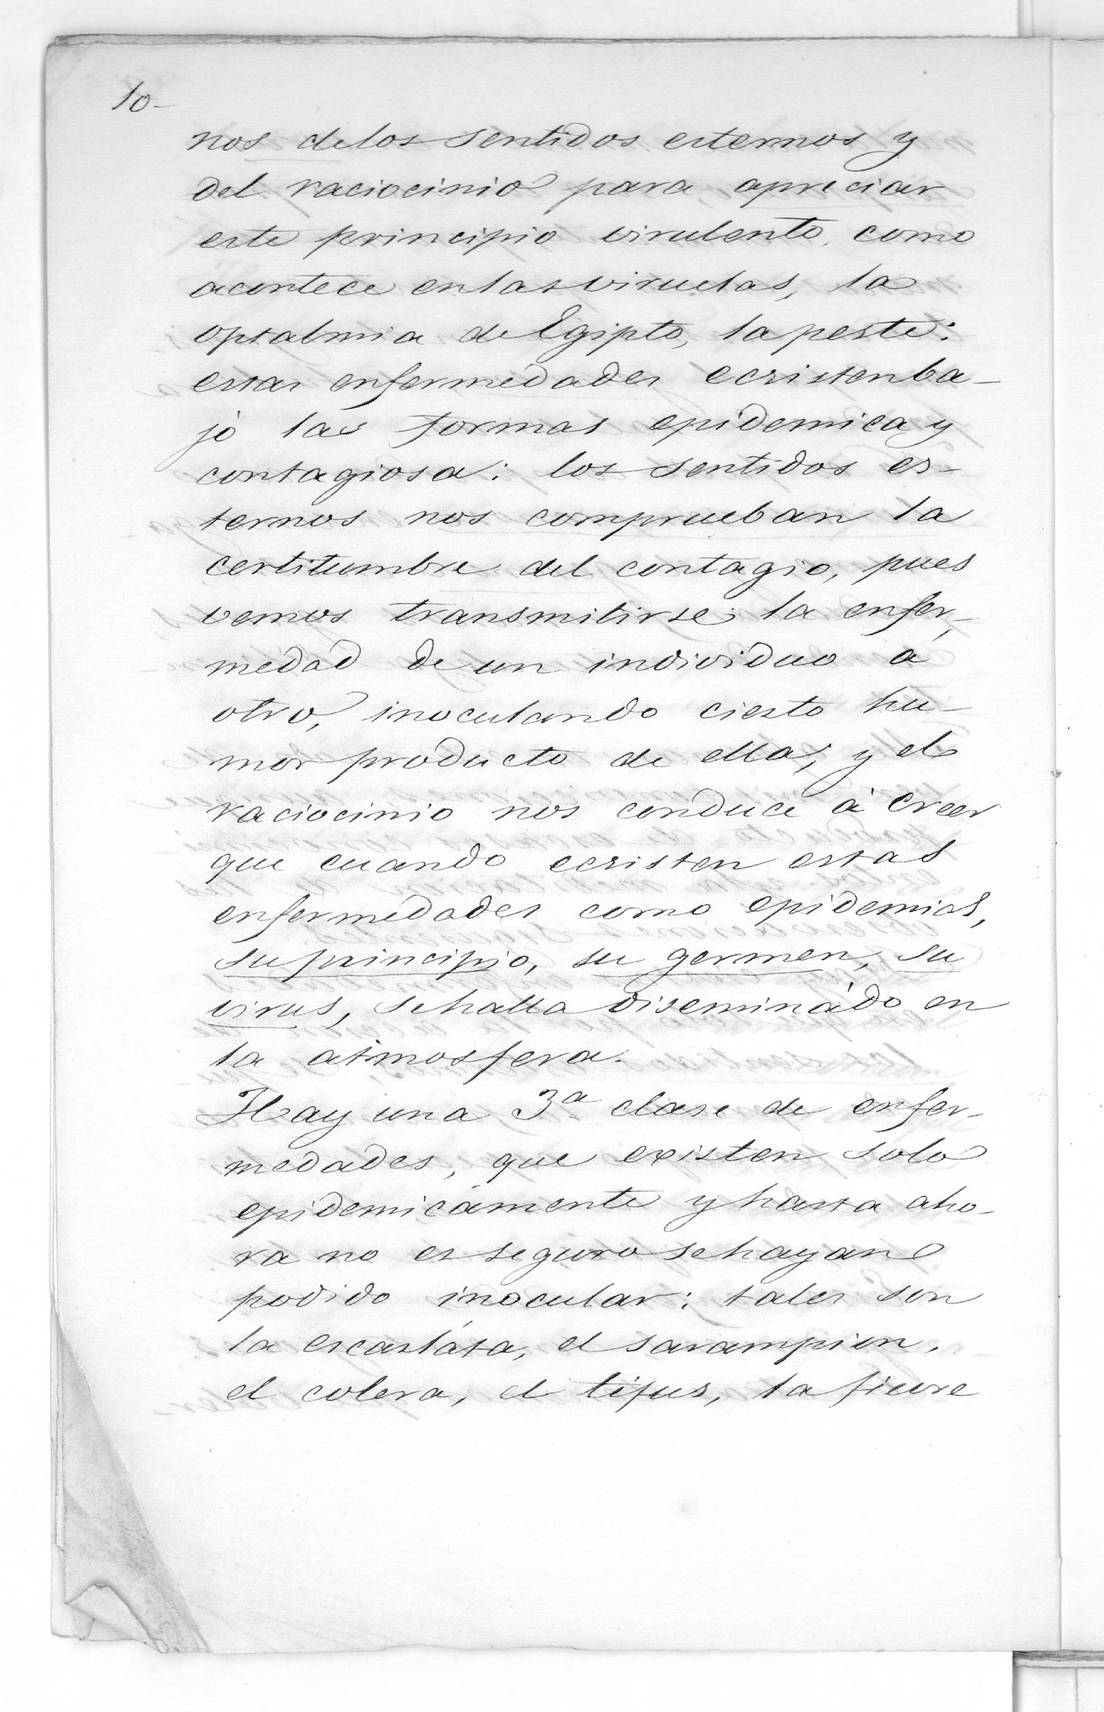 10-
nos de los sentidos esternos y
del raciocinio para apreciar
este principio virulento, como
acontece en las viruelas, la
optalmia de Egipto, la peste:
estas enfermedades ecsisten ba-
jo las formas epidemica y
contagiosa: los sentidos es-
ternos nos comprueban la
certitumbre del contagio, pues
vemos transmitirse la enfer-
medad de un individuo á
otro, inoculando cierto hu-
mor producto de ella; y el
raciocinio nos conduce à creer
que cuando ecsisten estas
enfermedades como epidemias,
su principio, su germen, su
virus, se halla diseminádo en
la atmosfera.
Hay una 3ª clase de enfer-
medades, que existen solo
epidemicámente y hasta aho-
ra no es seguro se hayan
podido inocular; tales son
la escarláta, el sarampion,
el colera, el tifus, la fievre